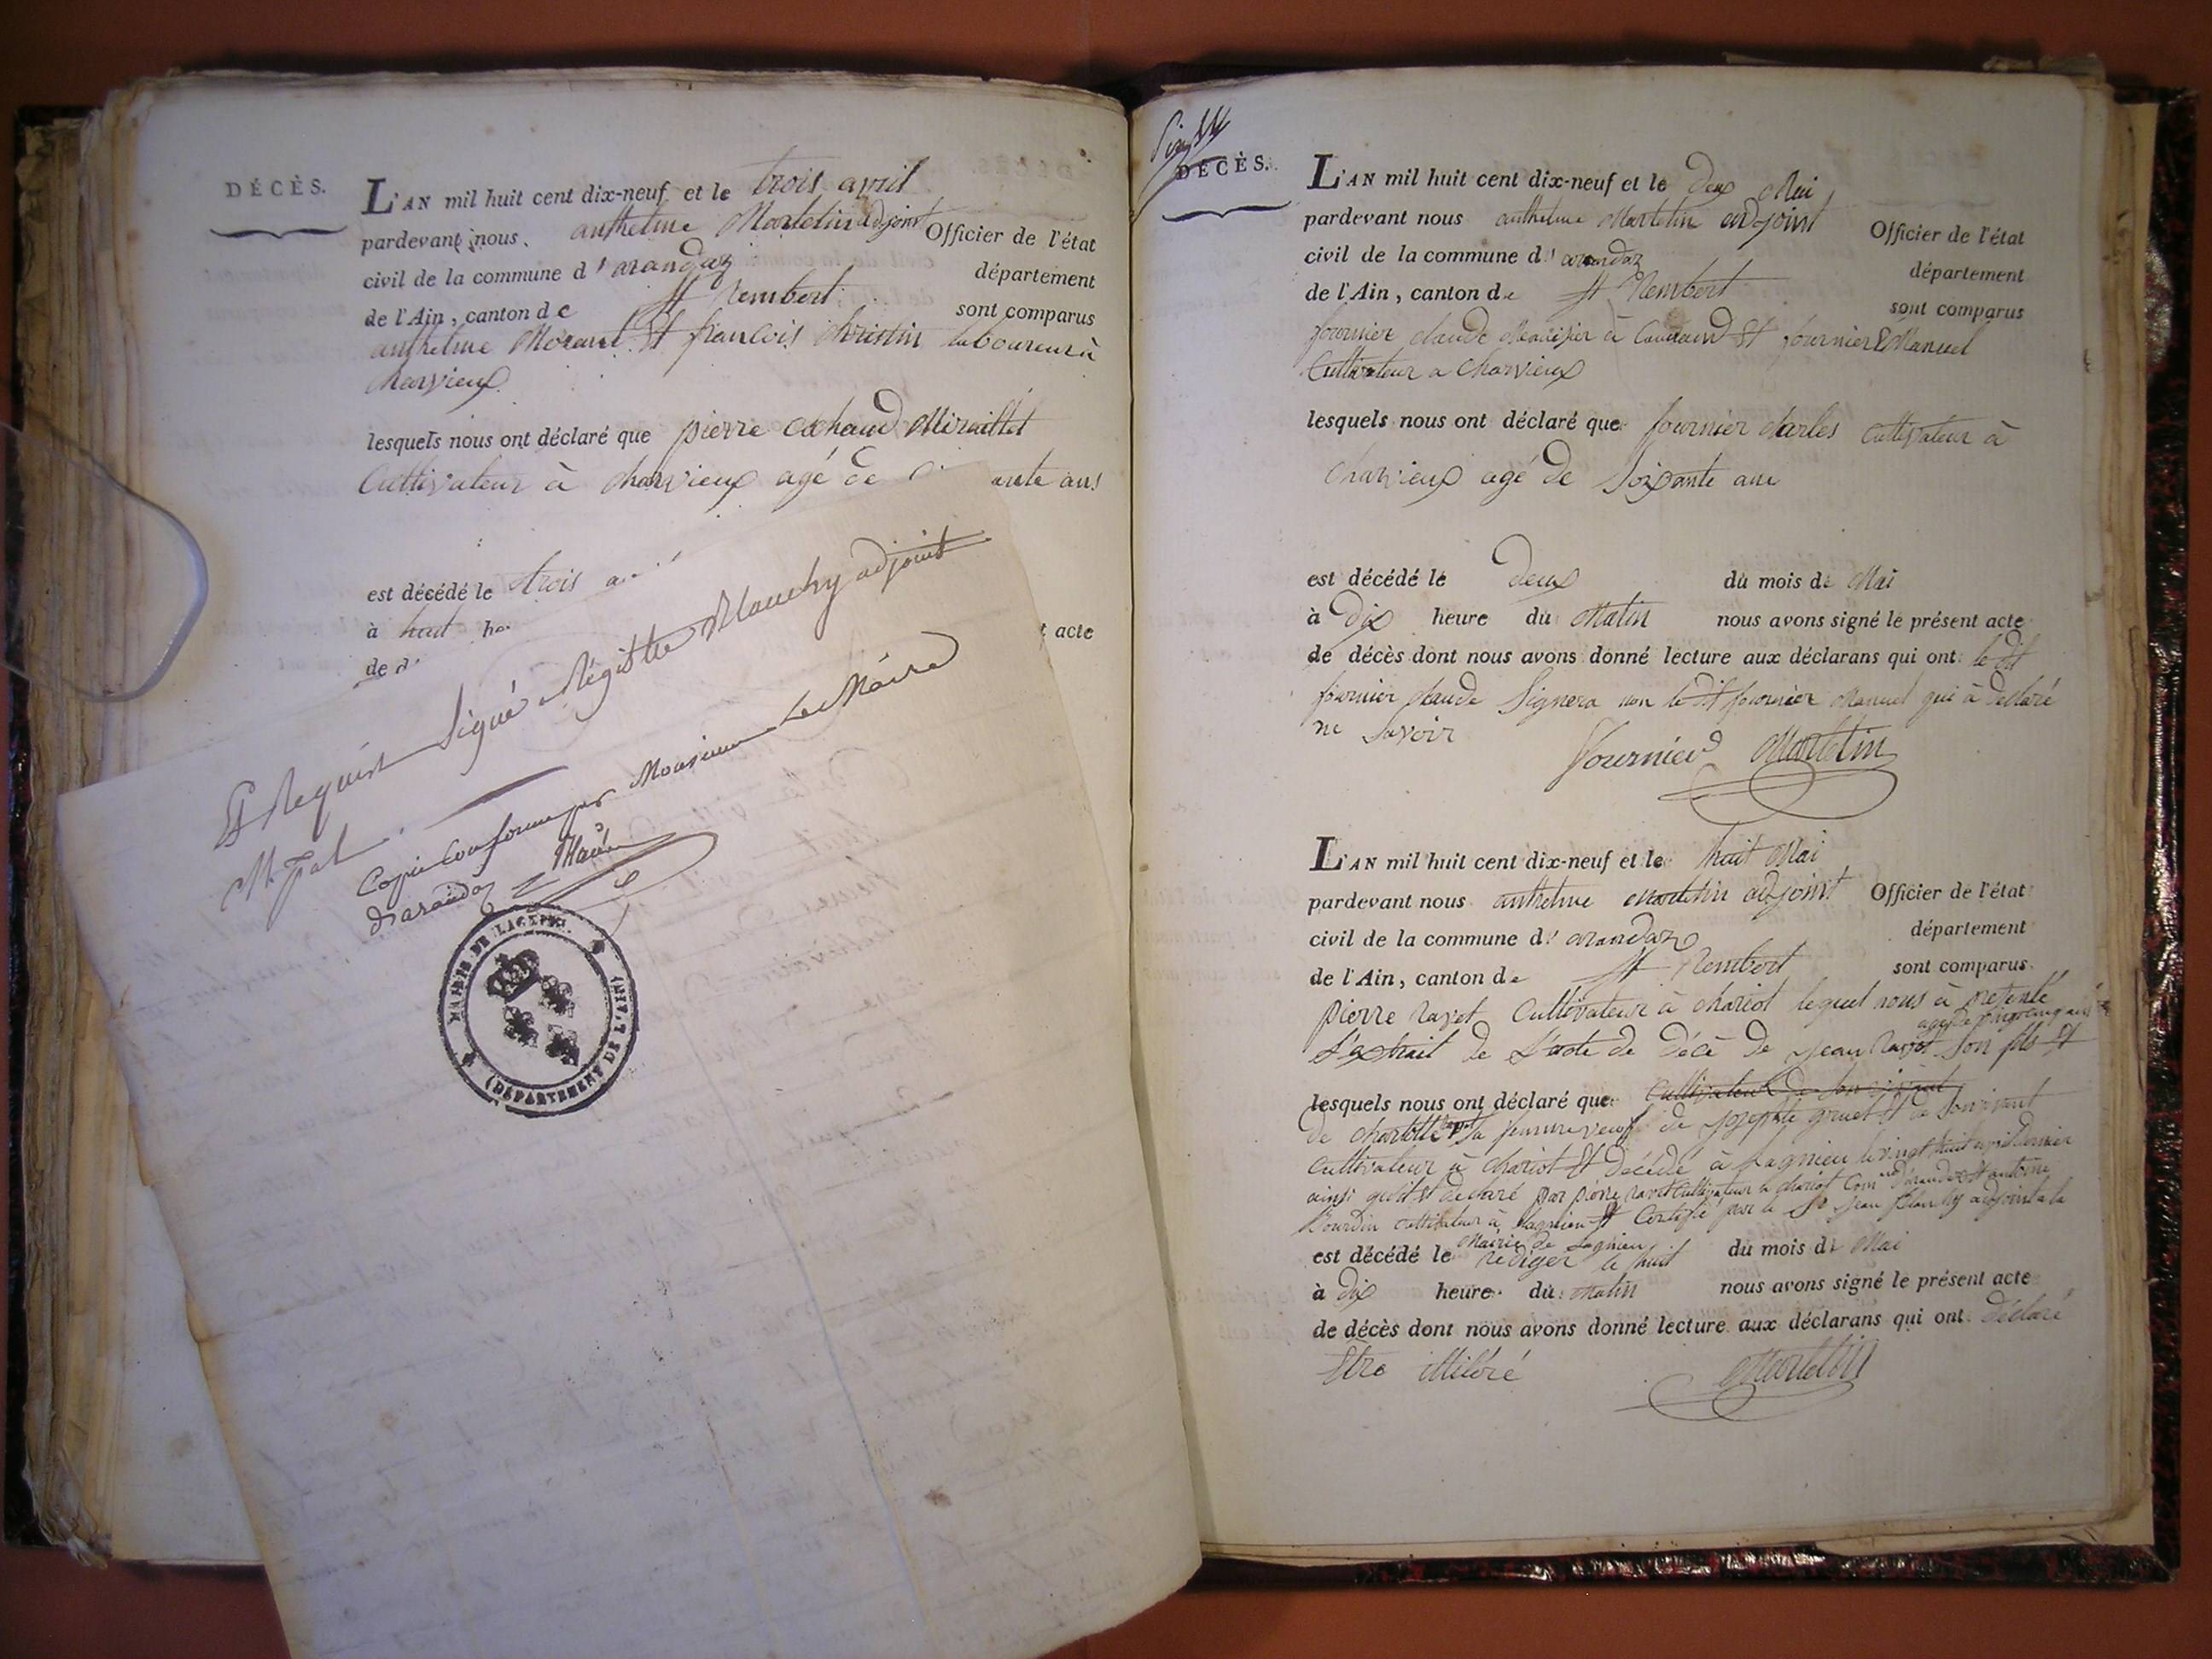 DÉCÈS.
L'AN mil huit cent dix-neuf et le trois avril
pardevant nous anthelme Martelin adjoint Officier de l'état
civil de la commune d'arandaz département
de l'Ain, canton de St Rembert sont comparus
anthelme Et françois Christin laboureur à
Charvieux
lesquels nous ont déclaré que pierre
Cultivateur à charvieux agé de ante ans
est décédé le trois
à huit
de
acte
Et Requis signé au Régistre Planchy adjoint
Copie Conforme par Monsieur Le Maire
d'arandaz
MAIRIE DE LAGNIEU. (DÉPARTEMENT DE L'AIN)
DÉCÈS.
L'AN mil huit cent dix-neuf et le deux Mai
pardevant nous anthelme Martelin adjoint Officier de l'état
civil de la commune d'arandaz département
de l'Ain, canton de St Rembert sont comparus
fournier claude à Et fournier Manuel
Cultivateur a Charvieux
lesquels nous ont déclaré que fournier charles Cultivateur à
Charvieux agé de Soixante ans
est décédé le deux du mois de Mai
à dix heure du Matin nous avons signé le présent acte
de décès dont nous avons donné lecture aux déclarans qui ont ledit
fournier claude Signera non ledit fournier Manuel qui à déclaré
ne savoir
Fournier Martelin
L'AN mil huit cent dix-neuf et le huit Mai
pardevant nous anthelme Martelin adjoint Officier de l'état
civil de la commune d'arandaz département
de l'Ain, canton de St Rembert sont comparus
pierre ravet Cultivateur à chariot lequel nous à présenté
agé de vingt cinq ans
L'extrait de L'acte de Décè de jean ravet son fils Et
lesquels nous ont déclaré que Cultivateur de son vivant
de charlotte sa femme veuf de josephte gruet Et de son vivant
Cultivateur à chariot Et Décédé à Lagnieu le vingt huit avril dernier
ainsi qu'il Et declaré par pierre ravet Cultivateur à chariot Comne d'arandaz Et antoine
Bourdin Cultivateur à Lagnieu Et Certifié par le Sr jean Planchy adjoint a la
Mairie de Lagnieu
est décédé le rediger le huit du mois de Mai
à dix heure du Matin nous avons signé le présent acte
de décès dont nous avons donné lecture aux déclarans qui ont déclaré
Etre illitéré
Martelin